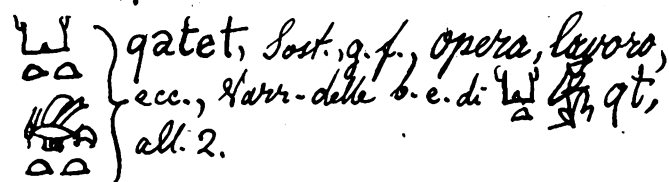 qatet, Sost., g. f., opera, lavoro,
ecc., Varr. delle b. e. di qt,
all. 2.